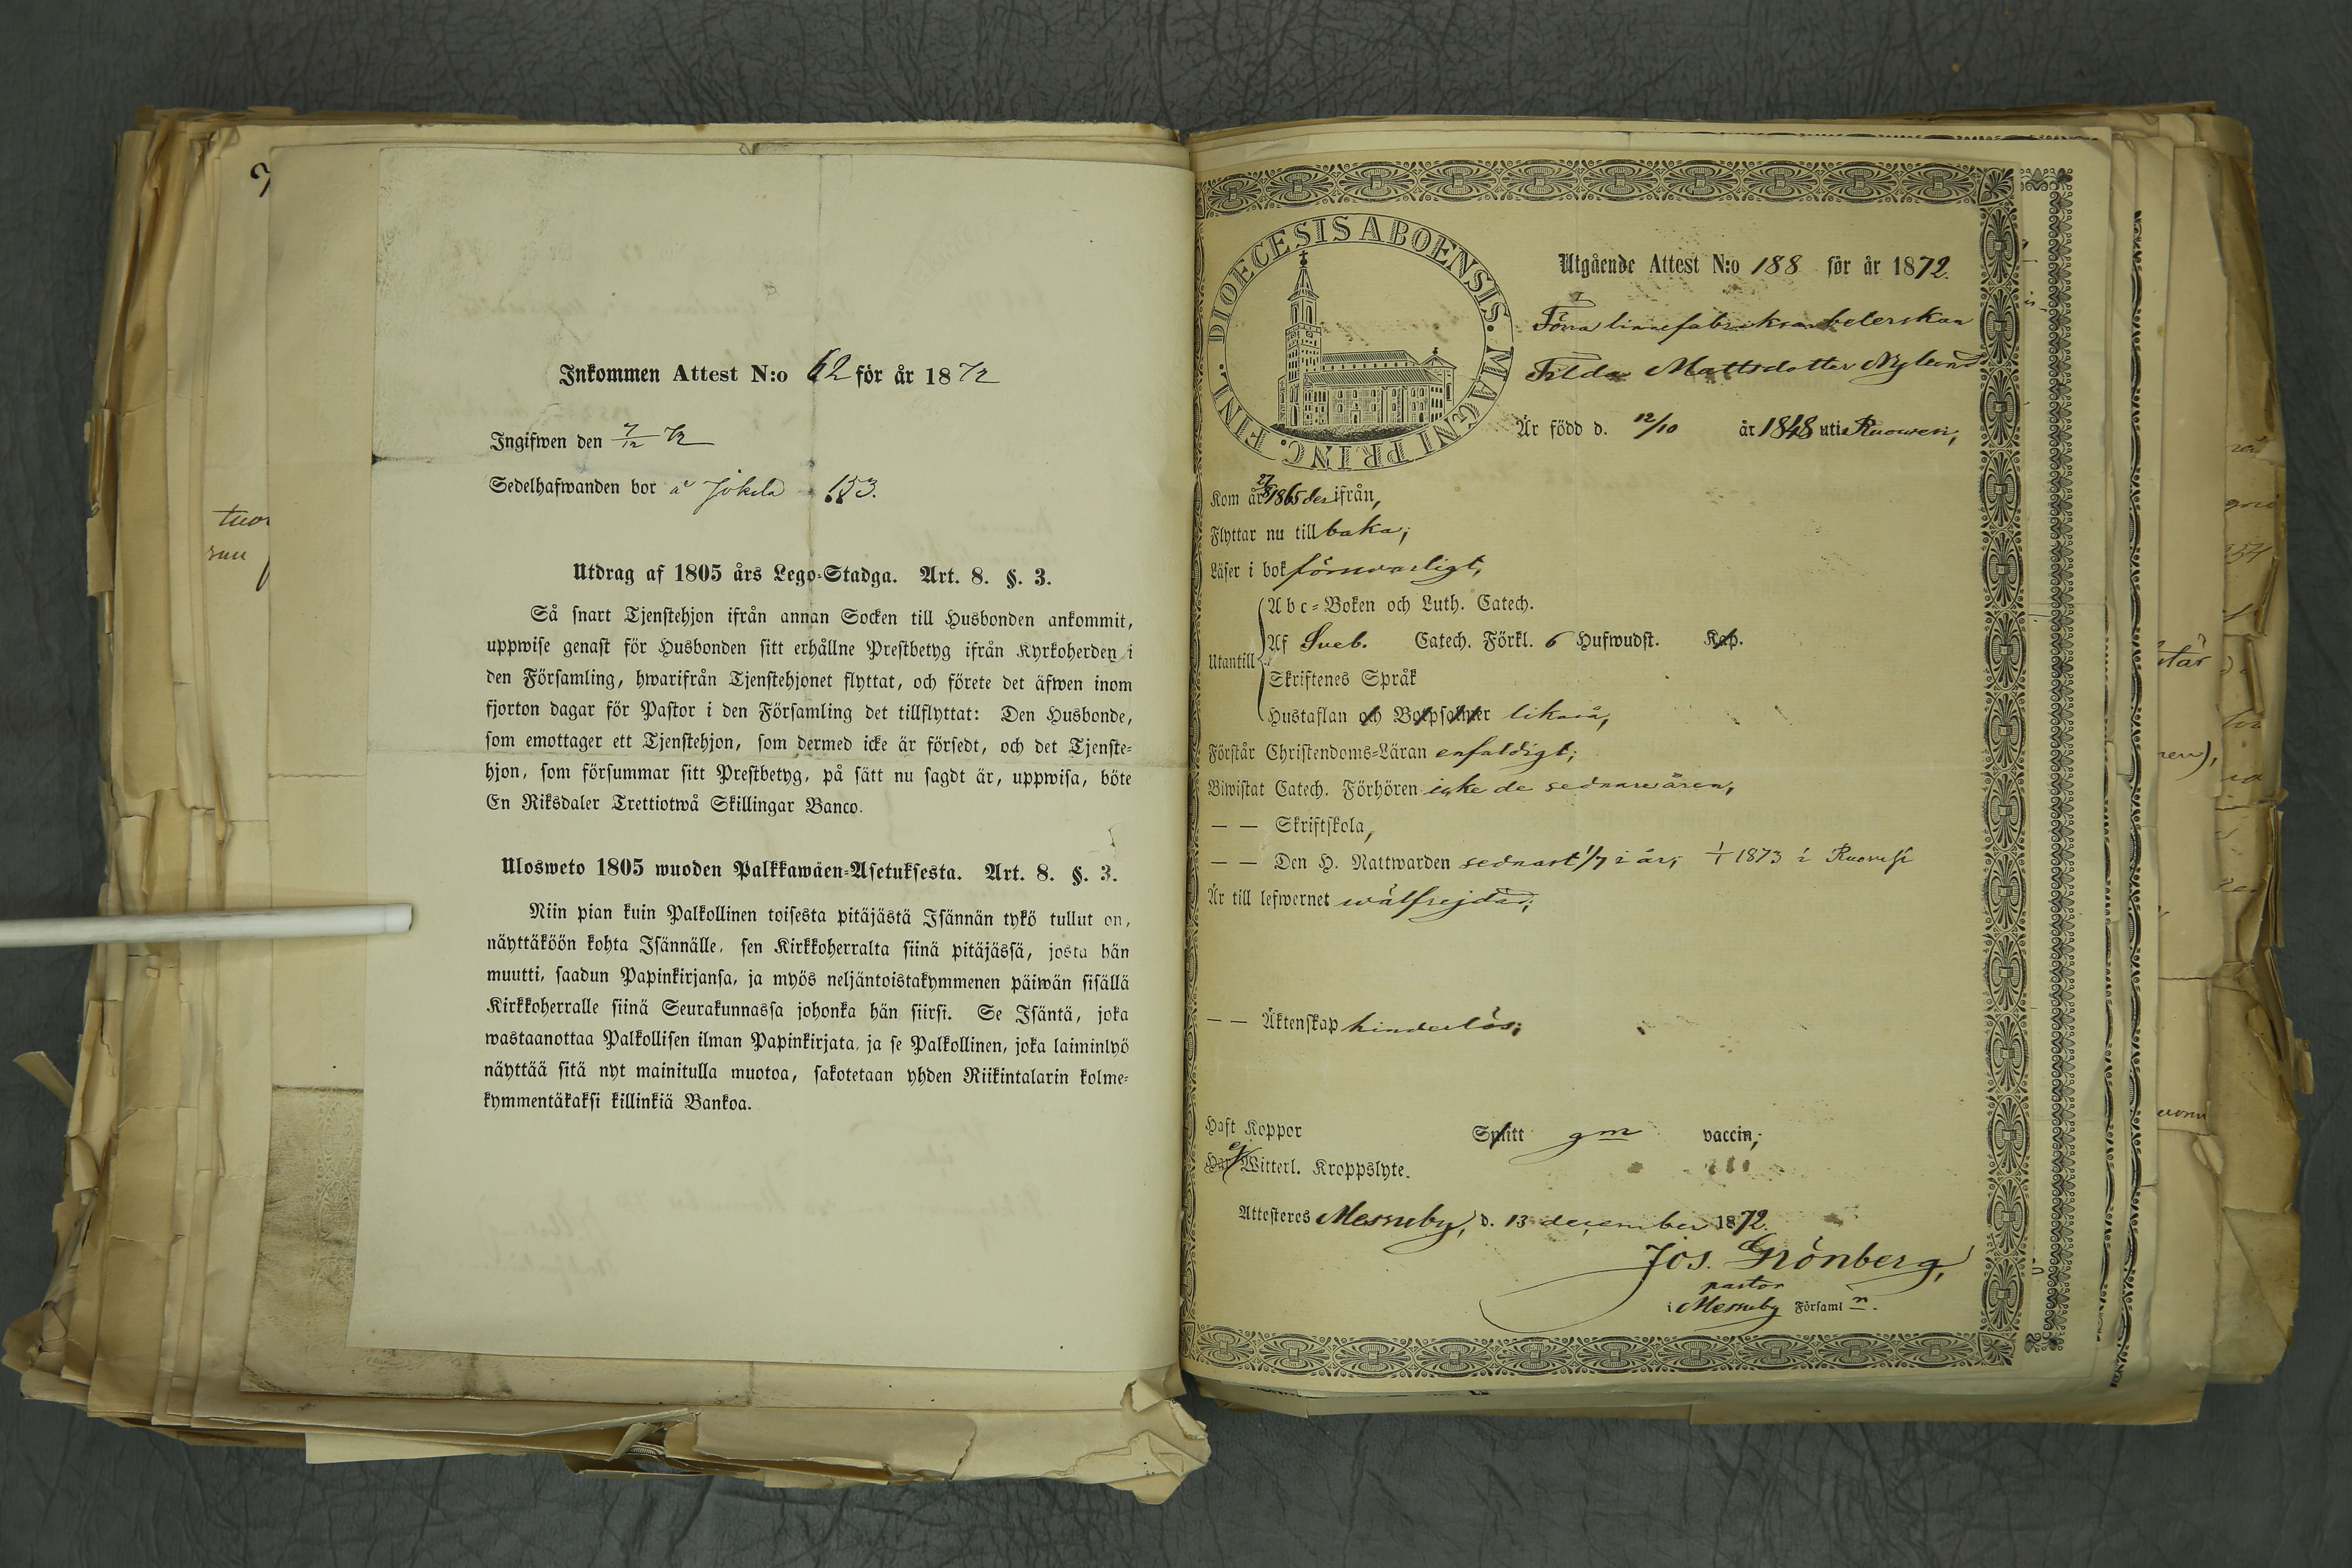 Inkommen Attest N:o 62 för år 1872
Ingifwen den 7/12 72
Sedelhafwanden bor å Jokela 153.
Utdrag af 1805 års Lego-Stadga. Art. 8. §. 3.
Så snart Tjenstehjon ifrån annan Socken till Husbonden ankommit,
uppwise genast för Husbonden sitt erhållne Prestbetyg ifrån Kyrkoherden i
den Församling, hwarifrån Tjenstehjonet flyttat, och förete det äfwen inom
fjorton dagar för Pastor i den Församling det tillflyttat: Den Husbonde,
som emottager ett Tjenstehjon, som dermed icke är försedt, och det Tjenste-
hjon, som försummar sitt Prestbetyg, på sätt nu sagdt är, uppwisa, böte
En Riksdaler Trettiotwå Skillingar Banco.
Ulosweto 1805 wuoden Palkkawäen-Asetuksesta. Art. 8. §. 3.
Niin pian kuin Palkollinen toisesta pitäjästä Isännän tykö tullut on,
näyttäköön kohta Isännälle, sen Kirkkoherralta siinä pitäjässä, josta hän
muutti, saadun Papinkirjansa, ja myös neljäntoistakymmenen päiwän sisällä
Kirkkoherralle siinä Seurakunnassa johonka hän siirsi. Se Isäntä, joka
wastaanottaa Palkollisen ilman Papinkirjata, ja se Palkollinen, joka laiminlyö
näyttää sitä nyt mainitulla muotoa, sakotetaan yhden Riikintalarin kolme-
kymmentäkaksi killinkiä Bankoa.
DIOECESIS ABOENSIS. MAGNI PRINC. FINL.
Utgående Attest N:o 188 för år 1872.
Förra linnefabriksarbeterskan
Tilda Mattsdotter Nylund
Är född d. 12/10 år 1848 uti Ruovesi,
Kom år 1865 der ifrån,
Flyttar nu till baka;
Läser i bok försvarligt,
Utantill
Abc-Boken och Luth. Catech.
Af Sveb. Catech. Förkl. 6 Hufwudst. Kap.
Skriftenes Språk
Hustaflan och Botpsalmer likaså,
Förstår Christendoms-Läran enfaldigt;
Biwistat Catech. Förhören icke de sednare åren,
— — Skriftskola,
— — Den H. Nattwarden sednast 1/7 i år; 1/1 1873 i Ruovesi
Är till lefwernet wälfrejdad;
— — Äktenskap hinderlös;
Haft Koppor Splitt gm vaccin;
Har ej Witterl. Kroppslyte.
Attesteres Messuby, d. 13 december 1872.
Jos. Grönberg,
pastor
i Messuby Församl n.